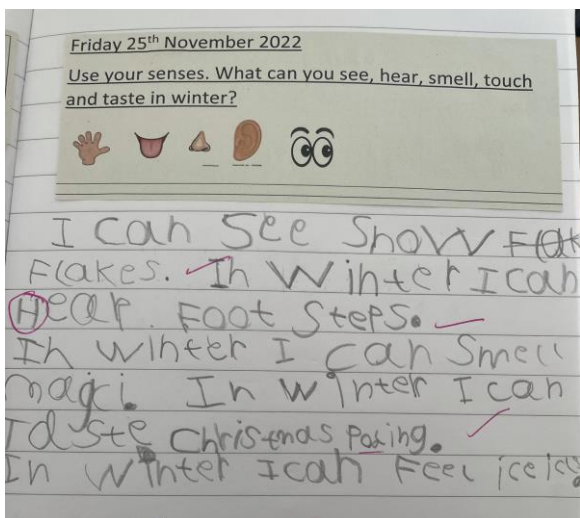 Friday 25th November 2022
Use your senses. What can you see, hear, smell, touch
and taste in winter?
I can see Snow
Flakes. In Winter I can
Hear. Foot Steps.
In winter I can Smell
magci. In winter I can
Taste christmas
In winter I can Feel ice